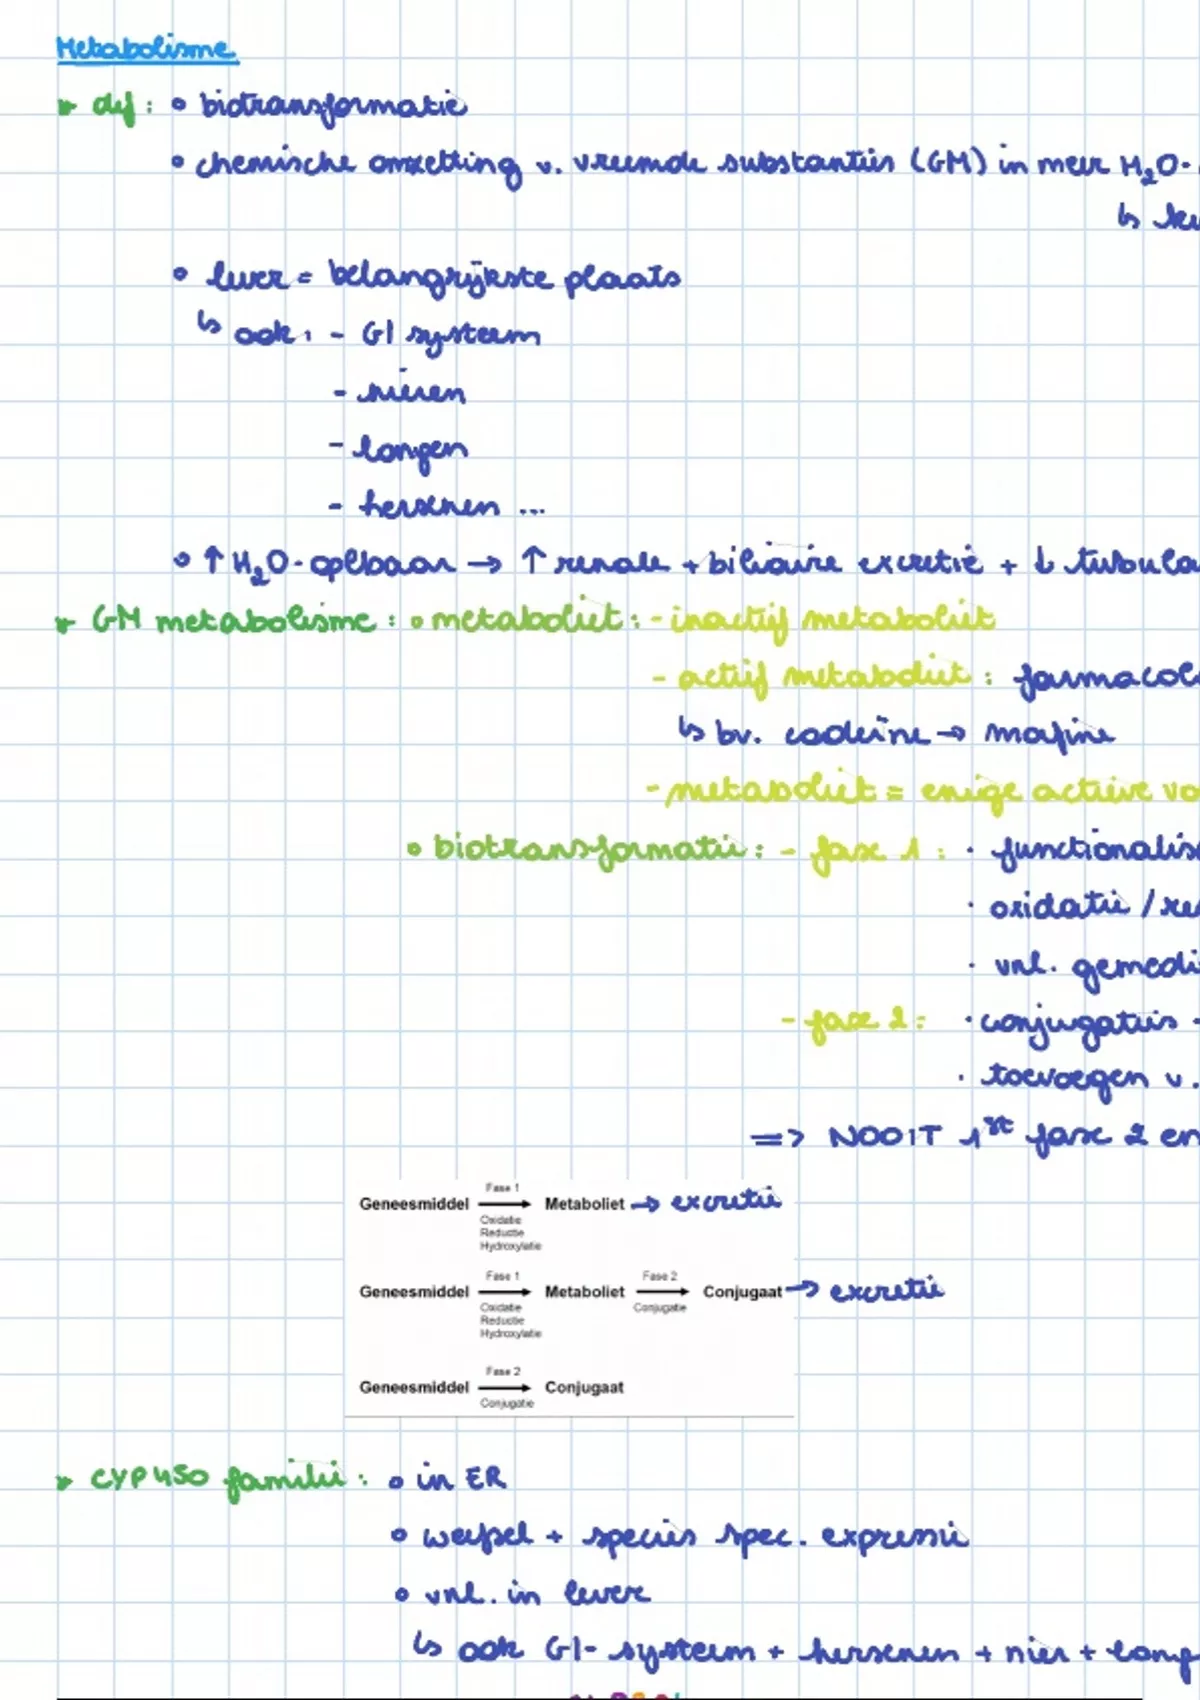 Metabolisme
def: • biotransformatie
• chemische omzetting v. vreemde substanties (GM) in meer H₂O-
↳
• lever = belangrijkste plaats
↳ ook: - GI systeem
- nieren
- longen
- hersenen ...
• ↑ H₂O-oplbaar → ↑ renale + biliaire excretie + ↓ tubula
GM metabolisme: • metaboliet: - inactief metaboliet
- actief metaboliet: farmacolo
↳ bv. codeïne → morfine
- metaboliet = enige actieve vo
• biotransformatie: - fase 1: · functionalis
· oxidatie / re
· vnl. gemedi
- fase 2: · conjugaties -
· toevoegen v.
=> NOOIT 1st fase 2 en
Fase 1
Geneesmiddel → Metaboliet → excretie
Oxidatie
Reductie
Hydroxylatie
Fase 1 Fase 2
Geneesmiddel → Metaboliet → Conjugaat → excretie
Oxidatie Conjugatie
Reductie
Hydroxylatie
Fase 2
Geneesmiddel → Conjugaat
Conjugatie
CYP450 familie: • in ER
• weefsel + species spec. expressie
• vnl. in lever
↳ ook GI-systeem + hersenen + nier + long